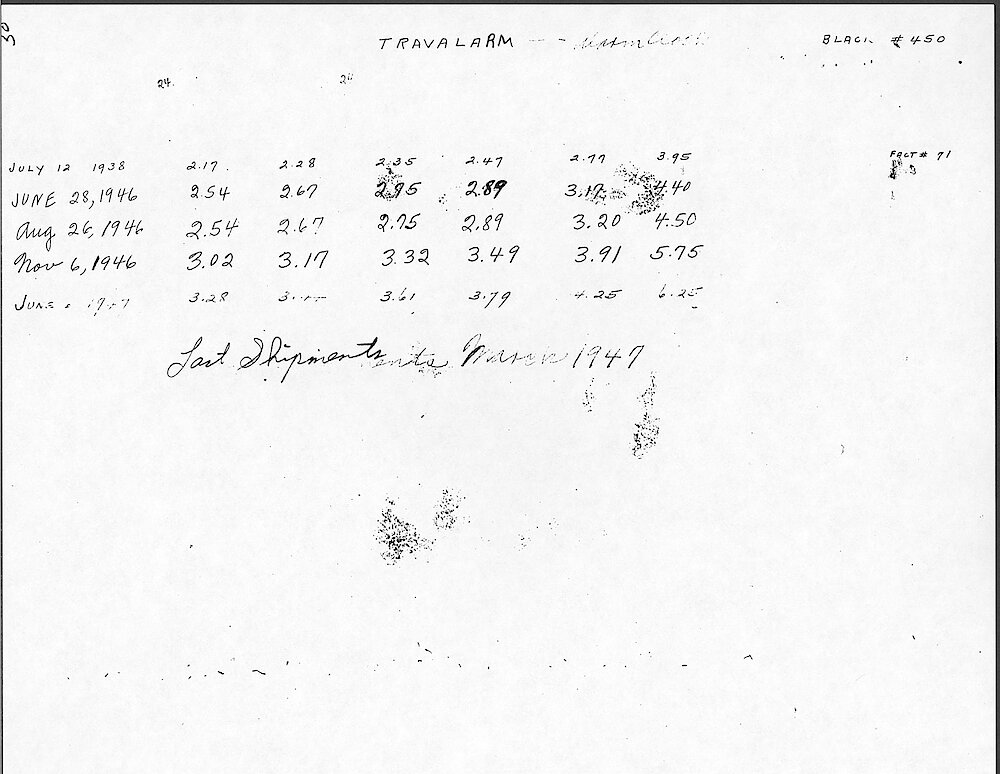 30
TRAVALARM - - Alarm Clock BLACK # 450
24. 24
JULY 12 1938 2.17 2.28 2.35 2.47 2.77 3.95 FACT # 71
JUNE 28, 1946 2.54 2.67 2.75 2.89 3.17 4.40
Aug 26, 1946 2.54 2.67 2.75 2.89 3.20 4.50
Nov 6, 1946 3.02 3.17 3.32 3.49 3.91 5.75
JUNE 1947 3.28 3.61 3.79 4.25 6.25
Last Shipments March 1947